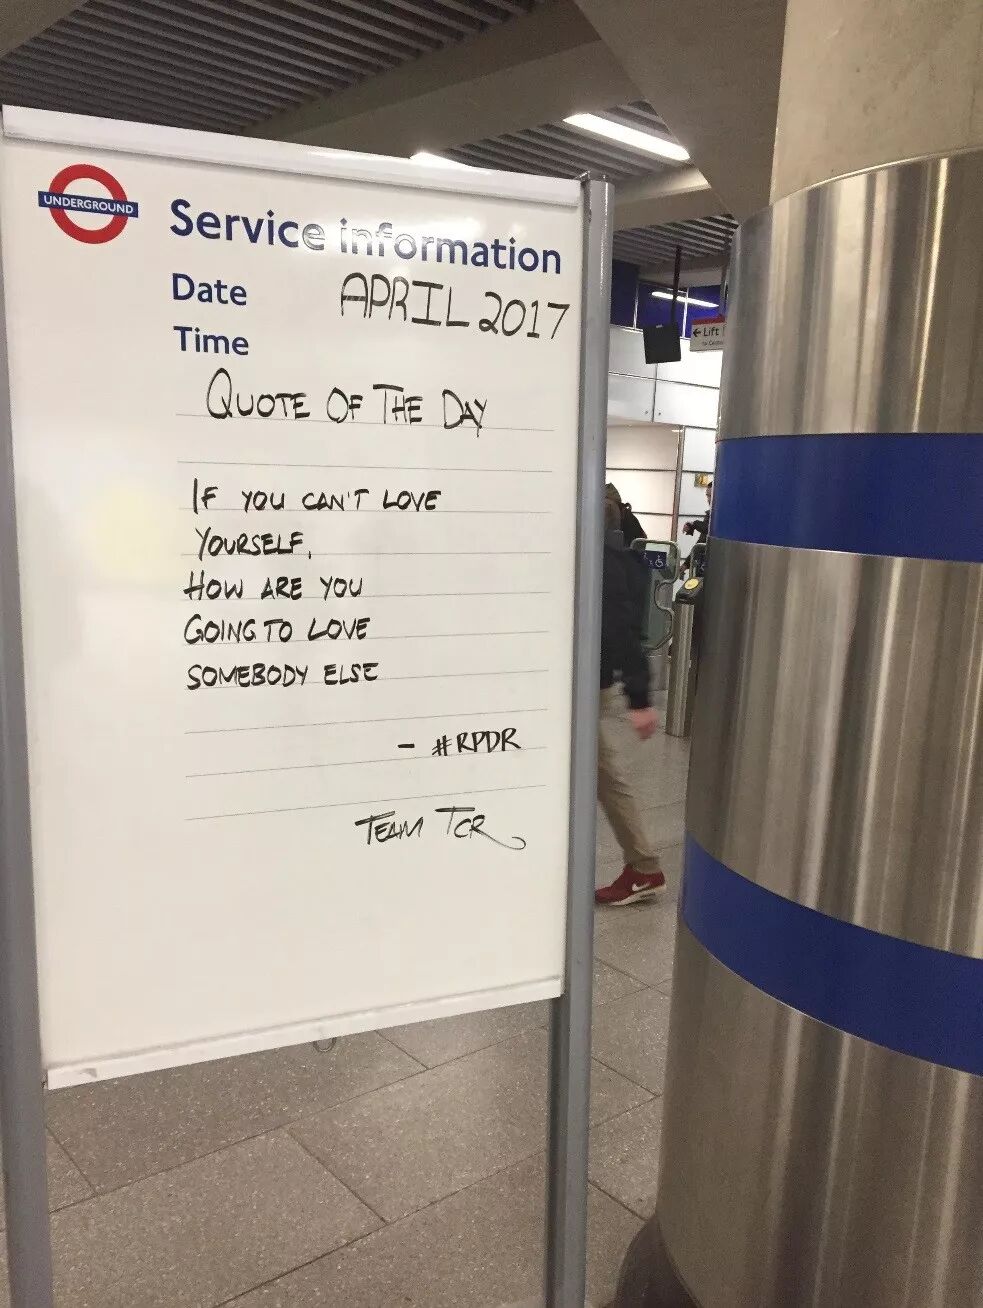 UNDERGROUND
Service information
Date APRIL 2017
Time
QUOTE OF THE DAY
IF YOU CAN'T LOVE
YOURSELF,
HOW ARE YOU
GOING TO LOVE
SOMEBODY ELSE
- #RPDR
TEAM TCR
← Lift